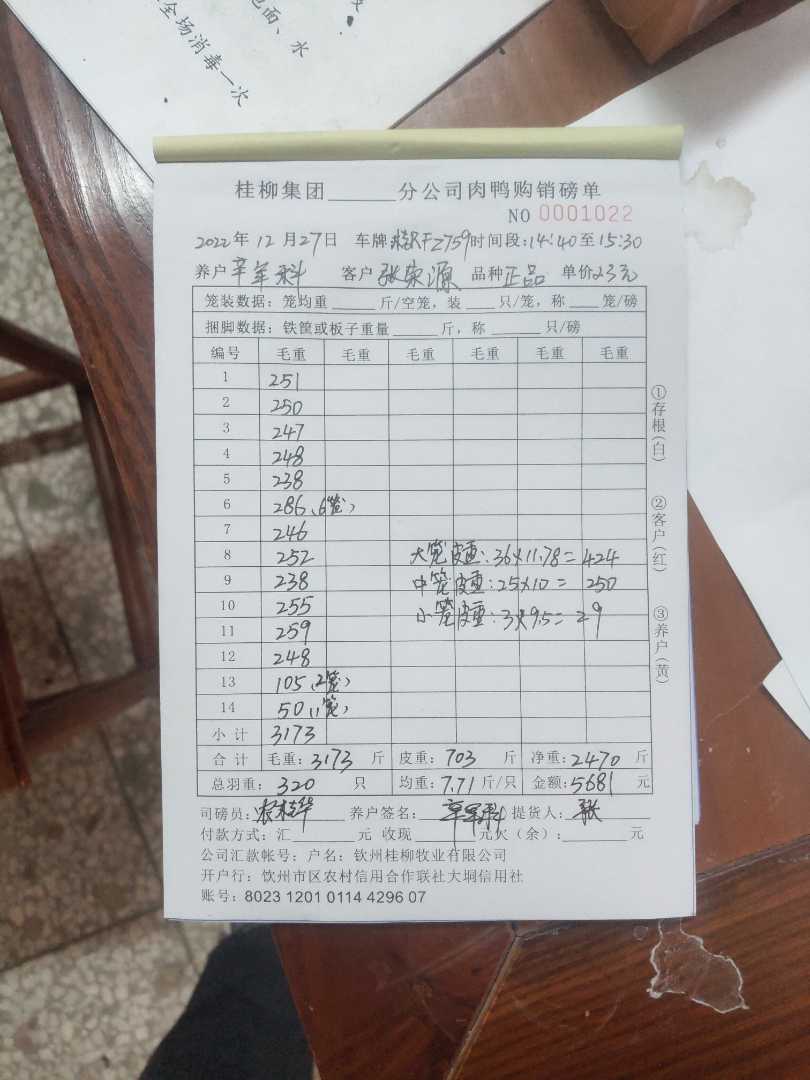 包面、水
全场消毒一次
桂柳集团______分公司肉鸭购销磅单
NO 0001022
2022年12月27日 车牌 桂RFZ759 时间段:14:40至15:30
养户 客户 张荣源 品种 正品 单价 2.3元
笼装数据：笼均重______斤/空笼，装____只/笼，称____笼/磅
捆脚数据：铁筐或板子重量______斤，称______只/磅
编号 毛重 毛重 毛重 毛重 毛重 毛重
1 251
2 250
3 247
4 248
5 238
6 286(6笼)
7 246
8 252 大笼皮重:36×11.78=424
9 238 中笼皮重:25×10=250
10 255 小笼皮重:3×9.5=29
11 259
12 248
13 105(2笼)
14 50(1笼)
小计 3173
合计 毛重:3173斤 皮重:703斤 净重:2470斤
总羽重:320只 均重:7.71斤/只 金额:5681元
司磅员: 养户签名: 提货人:张
付款方式：汇______元 收现______元欠（余）:______元
公司汇款帐号：户名：钦州桂柳牧业有限公司
开户行：钦州市区农村信用合作联社大垌信用社
账号：8023 1201 0114 4296 07
①存根(白)
②客户(红)
③养户(黄)